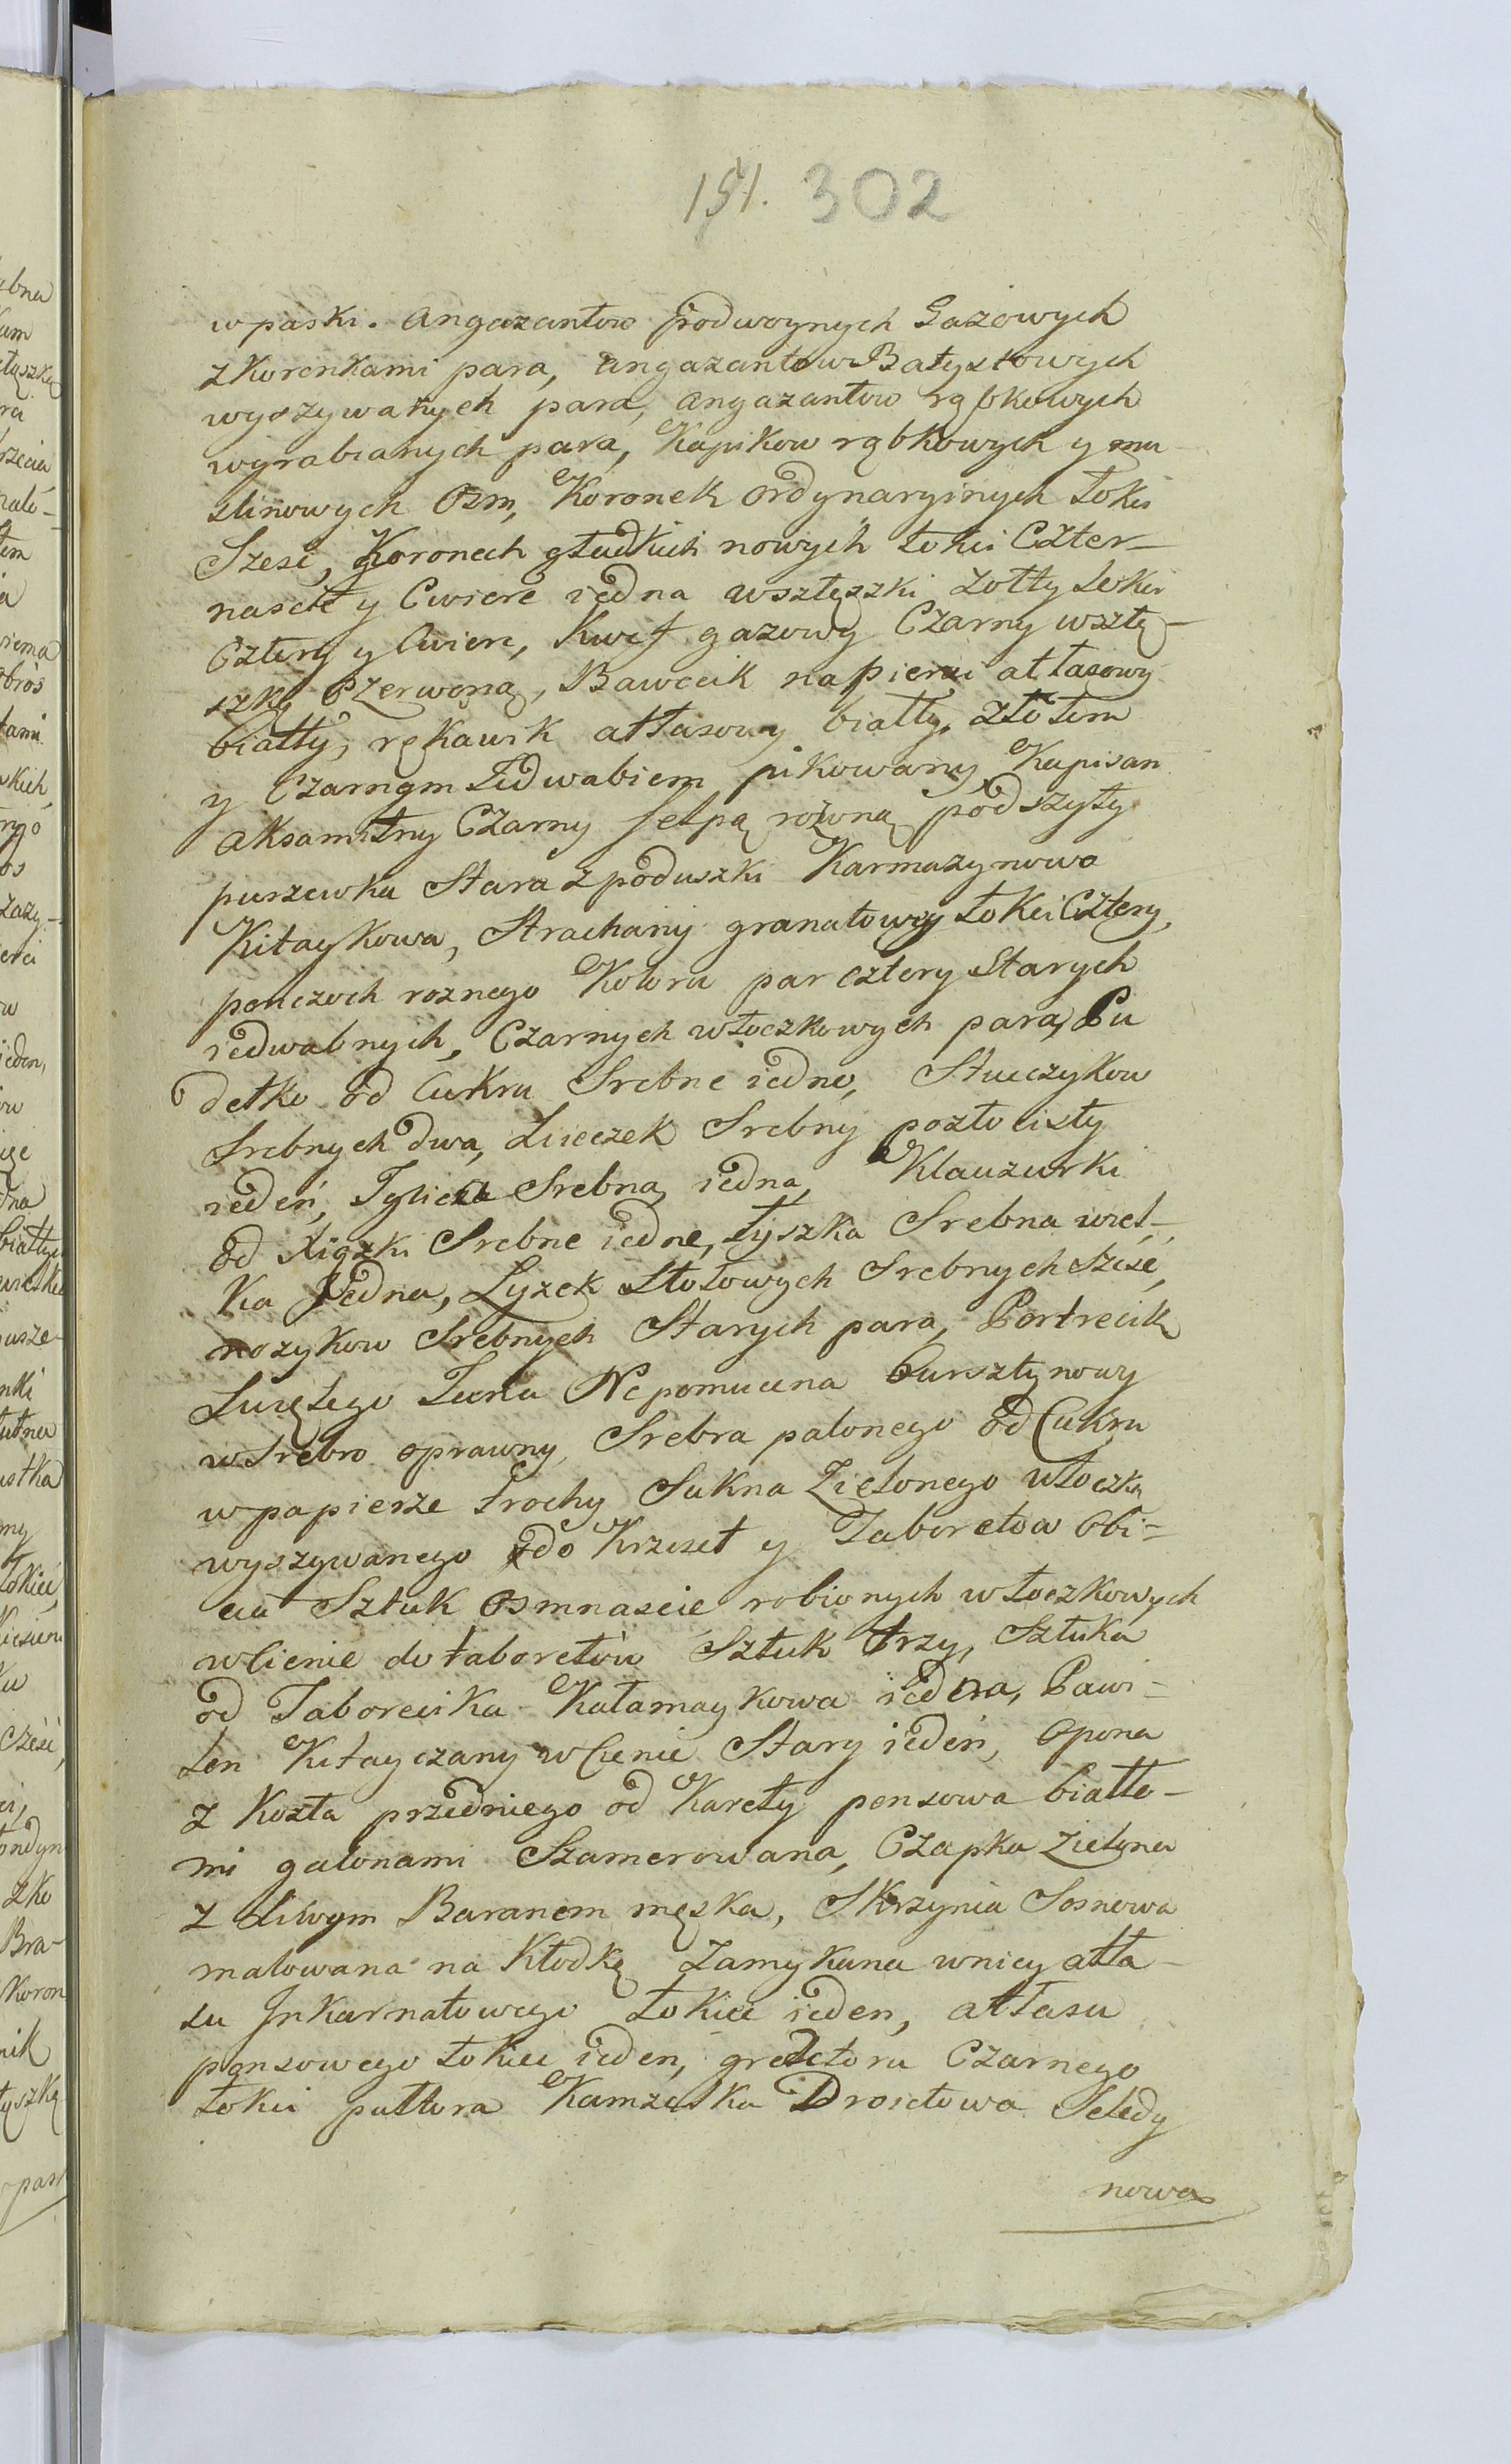 151. 302
w paski. Angazantow podwoynych Gazowych
z Koronkami para, angazantow Batystowych
wyszywanych para, angazantow rąbkowych
wyrabianych para, Kapikow rąbkowych y mu-
slinowych Osm, Koronek Ordynaryinych Łokci
Szesc, Koronek gładkich nowych Łokci Czter-
nascie y Cwierc iedna wsztęszki żołty Łokci
Cztery y Cwierc, Kwef gazowy Czarny wsztę-
szką Czerwoną, Bawecik na piersi atłasowy
biały, rękawik atłasowy biały, złotem
y Czarnym Jedwabiem pikowany, Kapisan
aksamitny Czarny felpą rożową podszyty
purzewka Stara z poduszki Karmazynowa
Kitaykowa, Strachany granatowey Łokci Cztery,
ponczoch roznego Koloru par cztery Starych
iedwabnych, Czarnych włoczkowych para, Pu
dełko od Cukru Srebne iedne, Stuczykow
Srebnych dwa, Liieczek Srebny pozłocisty
ieden, Iglica Srebna iedna, Klauzurki
od Xiązki Srebne iedne, Łyszka Srebna wiel-
ka Jedna, Lyzek Stołowych Srebnych Szesc,
nozykow Srebnych Starych para, Portrecik
Swiętego Jana Nepomucena bursztynowy
w Srebro oprawny, Srebra palonego od Cukru
w papierze trochy Sukna Zielonego włoczką
wyszywanego do Krzeseł y Taboretow Obi=
cia Sztuk Osmnascie robionych włoczkowych
w Cienie do taboretow Sztuk trzy, Sztuka
od Taborecika Kałamaykowa iedna, Pawi=
lon Kitayczany w Cienie Stary ieden, Opona
z Kozła przedniego od Karety ponsowa białe-
mi galonami Szamerowana, Czapka Zielona
z Siwym Baranem męska, Skrzynia Sosnowa
malowana na Kłodkę Zamykana w niey atła-
su Inkarnatowego Łokiec ieden, atłasu
ponsowego Łokiec ieden, gredetoru Czarnego
Łokci pułtora Kamzelka Drosetowa Seledy
nowa